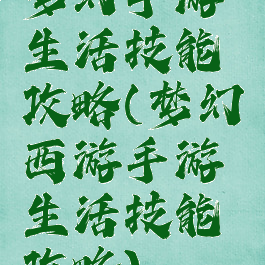 梦幻手游
生活技能
攻略(梦幻
西游手游
生活技能
攻略)